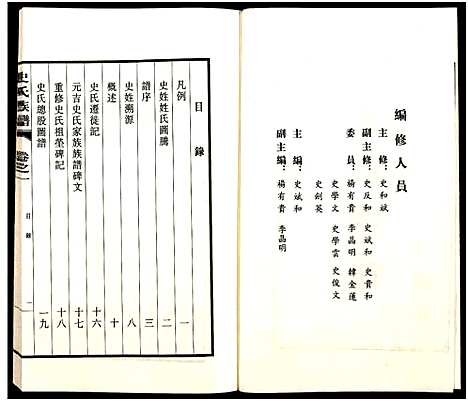 編修人員
主修：史和斌
副主修：史反和 史斌和 史貴和
委員：楊有貴 李晶明 韓金蓮
史學文 史學雲 史俊文
史劍英
主編：史斌和
副主編：楊有貴 李晶明
目錄
凡例 一
史姓姓氏圖騰 二
譜序 三
史姓溯源 八
概述 十
史氏遷徙記 十六
元吉史氏家族族譜碑文 十七
重修史氏祖塋碑記 十八
史氏總股圖譜 一九
史氏族譜
卷之一
目錄
一